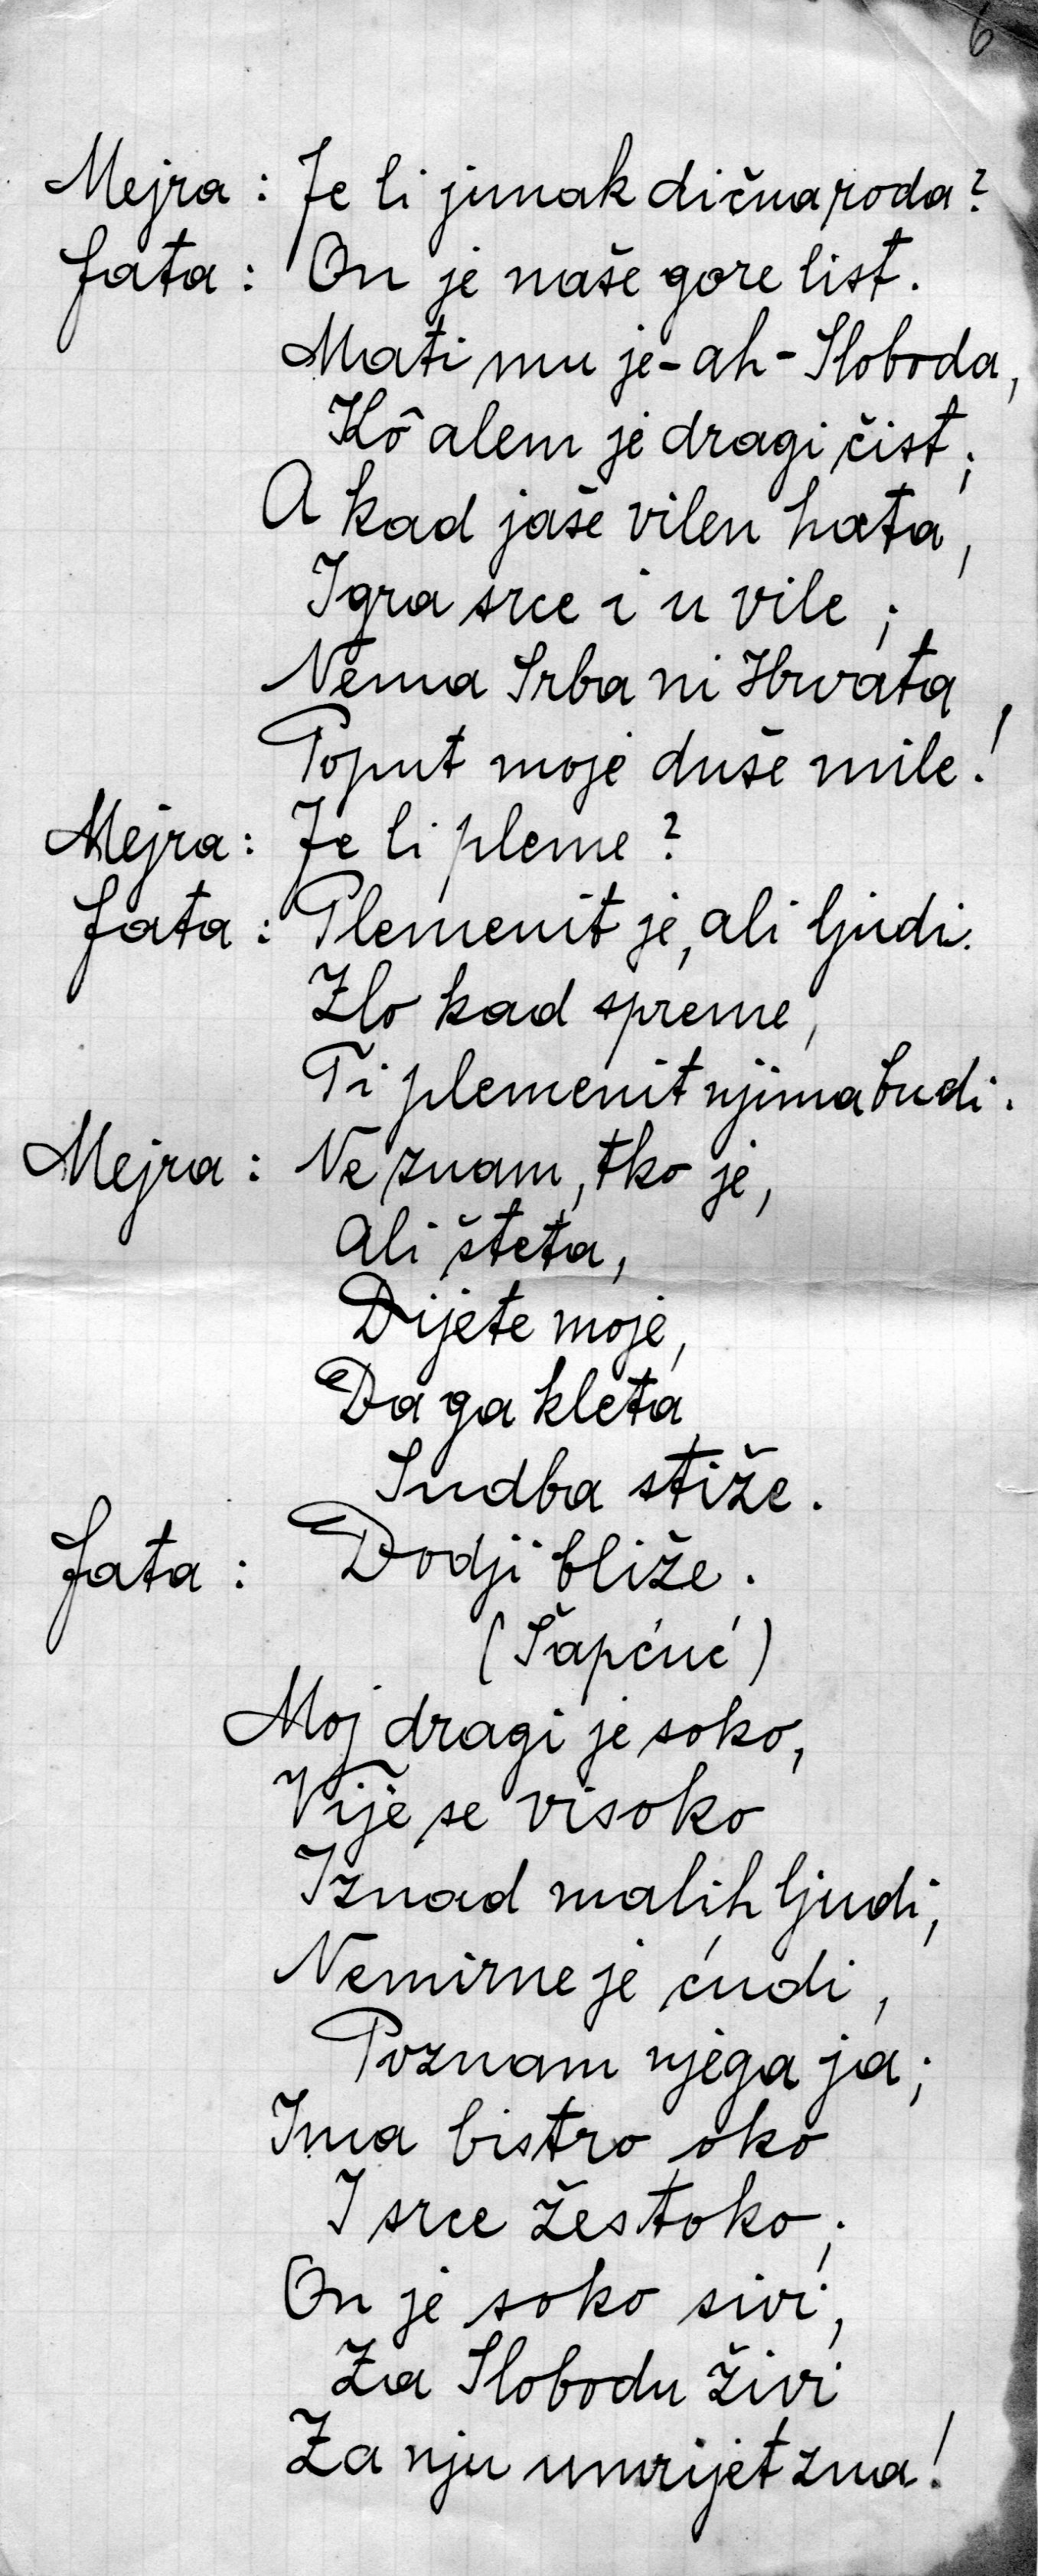 6
Mejra : Je li junak dična roda?
Fata : On je naše gore list.
Mati mu je - ah - Sloboda,
Kô alem je dragi čist;
A kad jaše vilen hata,
Igra srce i u vile;
Nema Srba ni Hrvata
Poput moje duše mile!
Mejra : Je li pleme?
Fata : Plemenit je, ali ljudi.
Zlo kad spreme,
Ti plemenit njima budi.
Mejra : Ne znam, tko je,
Ali šteta,
Dijete moje,
Da ga kleta
Sudba stiže.
Fata : Dodji bliže.
(Šapćuć)
Moj dragi je soko,
Vije se visoko
Iznad malih ljudi,
Nemirne je ćudi,
Poznam njega ja;
Ima bistro oko
I srce žestoko;
On je soko sivi,
Za Slobodu živi
Za nju umrijet zna!